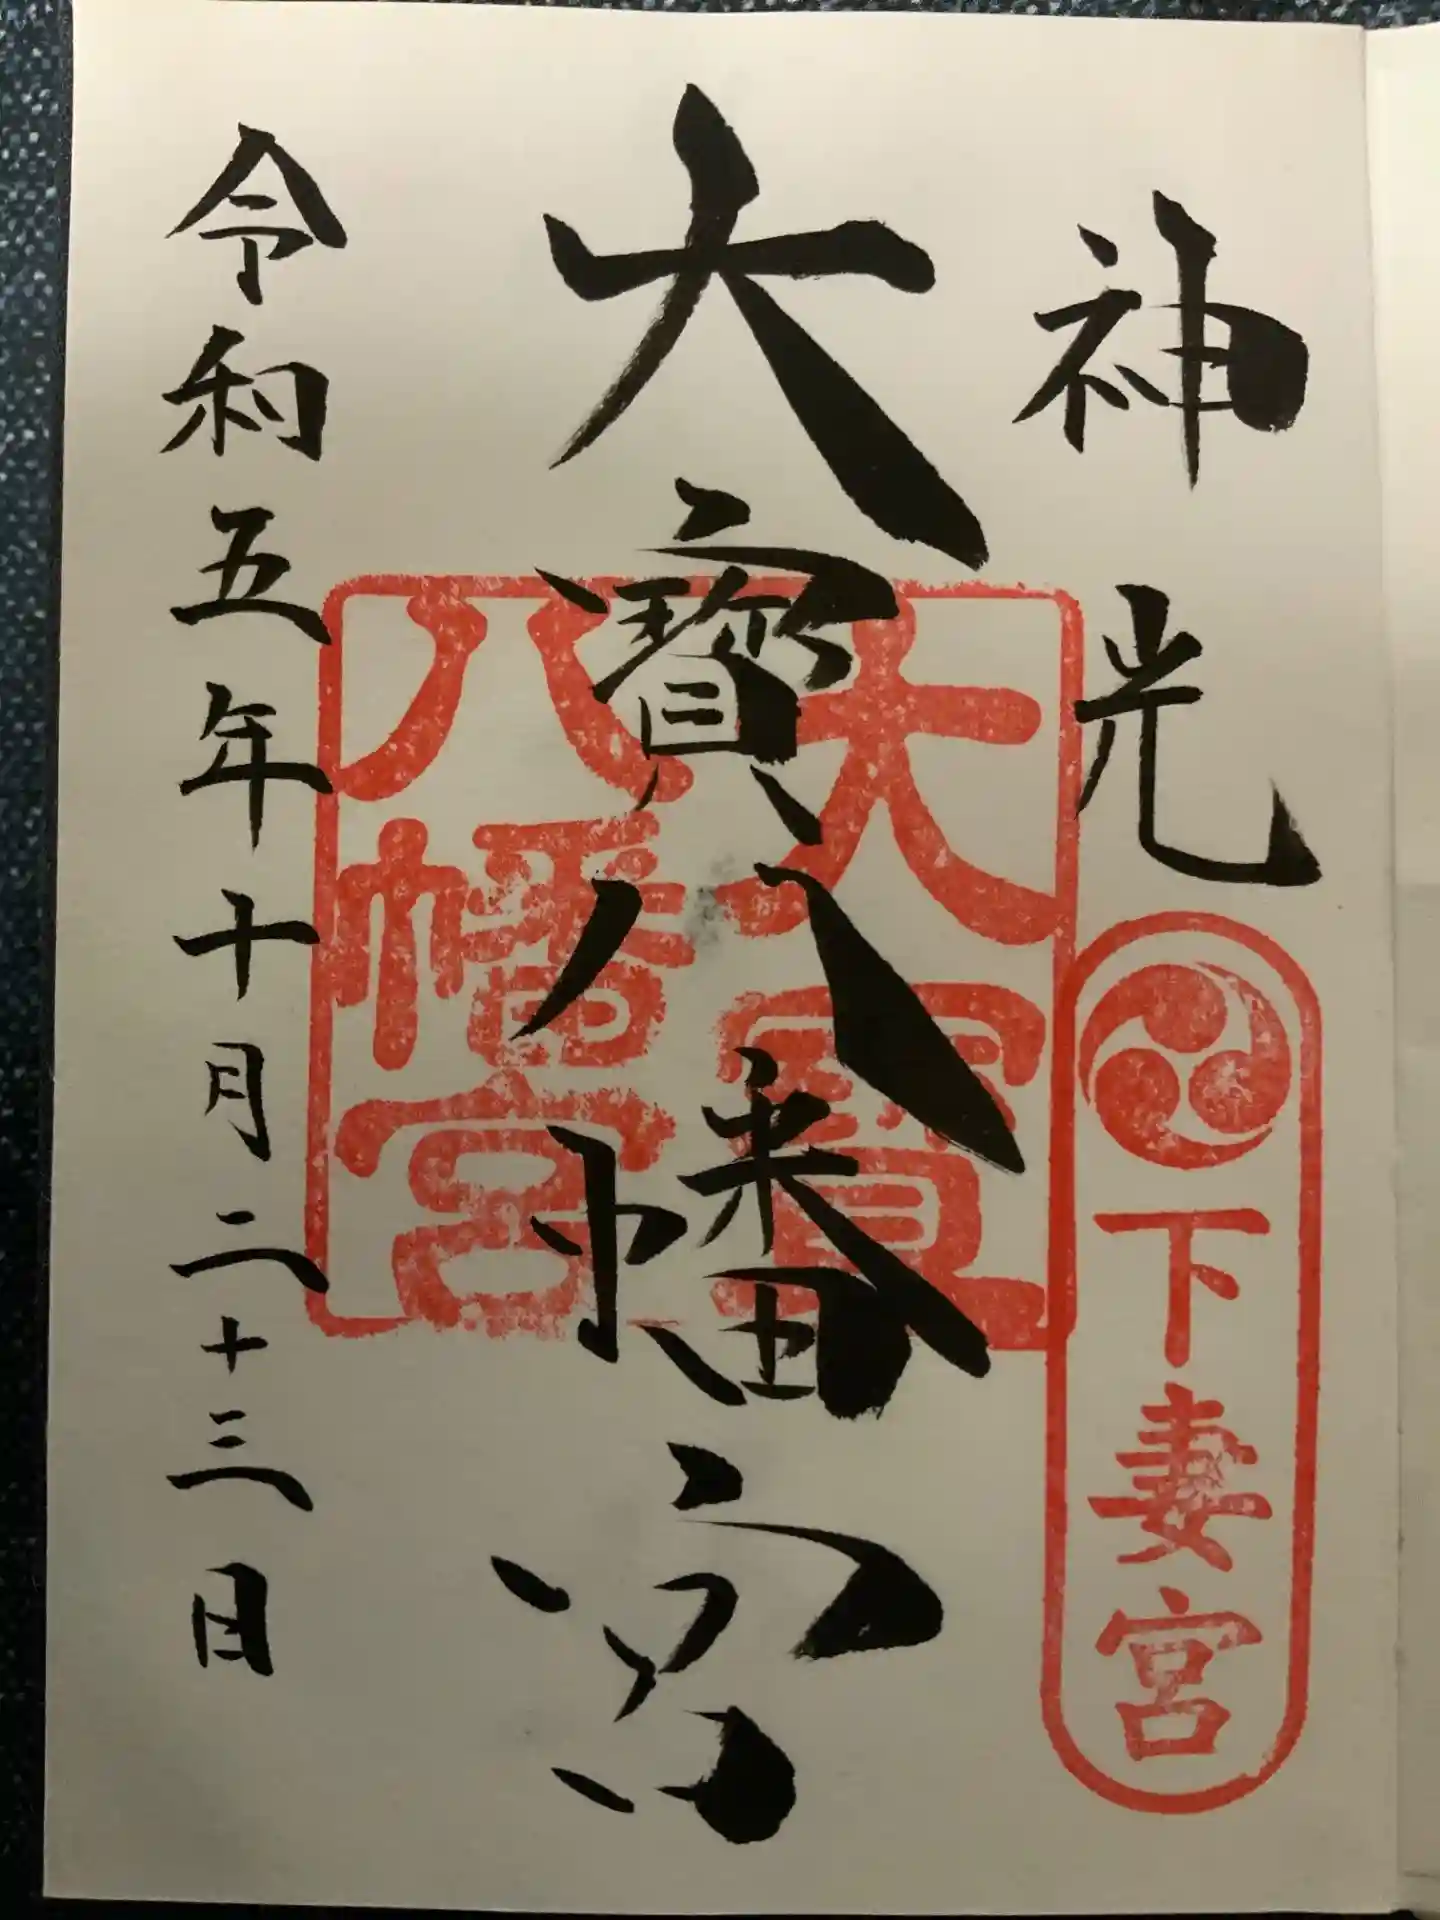 神光
下妻宮
大寶八幡宮
大寶
八幡宮
令和五年十月二十三日